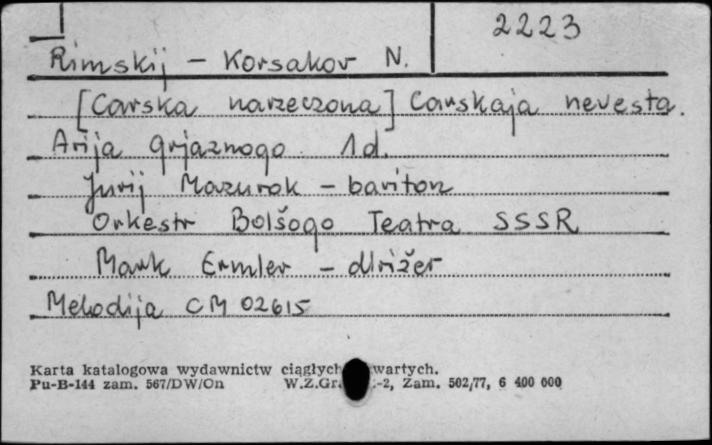 2223
Rimskij - Korsakov N.
[Carska narzeczona] Carskaja nevesta.
Arija Grjaznogo 1d.
Jurij Mazurok - bariton
Orkestr Bolšogo Teatra SSSR
Mark Ermler - dirižer
Melodija CM 02615
Karta katalogowa wydawnictw ciągłych wartych.
Pu-B-144 zam. 567/DW/On W.Z.Gr. -2, Zam. 502/77, 6 400 000